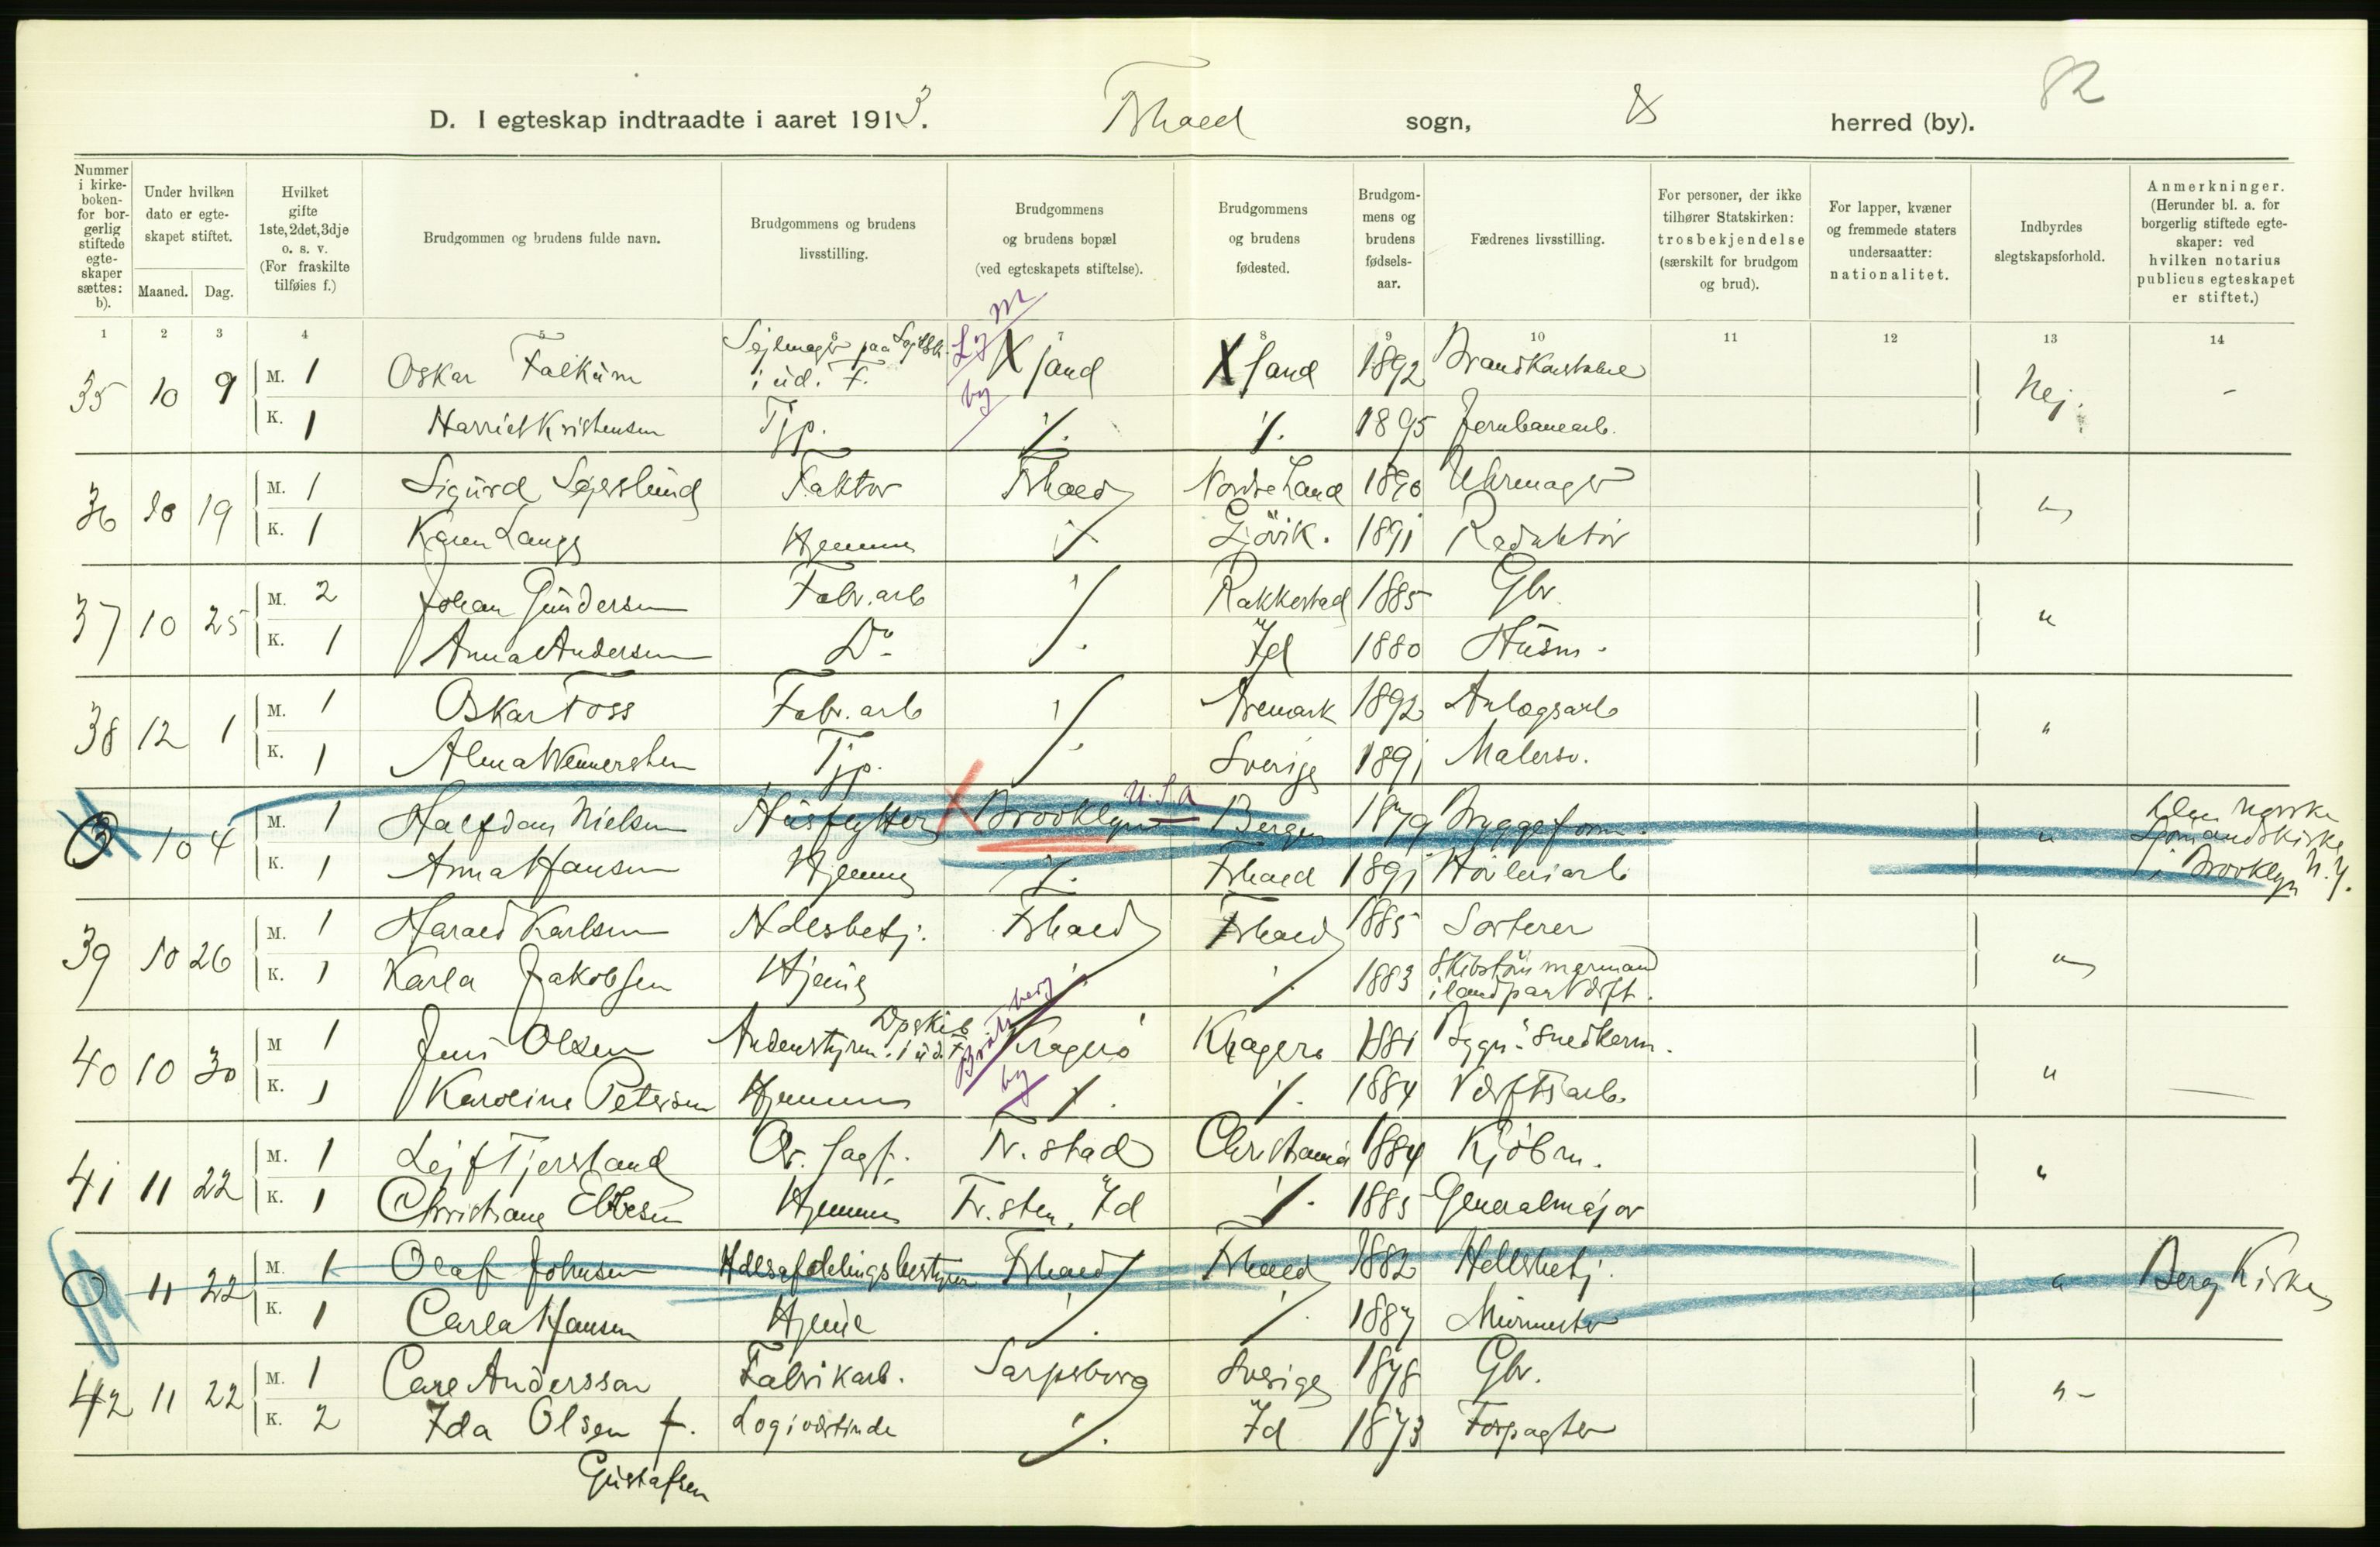 82
D. I egteskap indtraadte i aaret 1913. Fhald sogn, herred (by).
Nummer i kirke-boken- for bor-gerlig stiftede egte-skaper sættes: b).
Under hvilken dato er egte-skapet stiftet.
Maaned. Dag.
Hvilket gifte 1ste, 2det, 3dje o. s. v. (For fraskilte tilføies f.)
Brudgommen og brudens fulde navn.
Brudgommens og brudens livsstilling.
Brudgommens og brudens bopæl (ved egteskapets stiftelse).
Brudgommens og brudens fødested.
Brudgom-mens og brudens fødsels-aar.
Fædrenes livsstilling.
For personer, der ikke tilhører Statskirken: trosbekjendelse (særskilt for brudgom og brud).
For lapper, kvæner og fremmede staters undersaatter: nationalitet.
Indbyrdes slegtskapsforhold.
Anmerkninger. (Herunder bl. a. for borgerlig stiftede egte-skaper: ved hvilken notarius publicus egteskapet er stiftet.)
1 2 3 4 5 6 7 8 9 10 11 12 13 14
35 10 9 M. 1 Oskar Falkum Sejlmager paa Sejlsk. i ud. F. L & M by Xsand Xsand 1892 Brandkonstabel Nej. -
K. 1 Harriet Kristensen Tjp. ⁒ ⁒ 1895 Jernbanearb.
36 10 19 M. 1 Sigurd Sejerslund Faktor Fhald Nordre Land 1890 Uhrmager "
K. 1 Karen Lange Hjemme ⁒ Gjövik. 1891 Redaktör
37 10 25 M. 2 Johan Gundersen Fabr. arb ⁒ Rakkestad 1885 Gbr. "
K. 1 Anna Andersen Do ⁒ Id 1880 Husm.
38 12 1 M. 1 Oskar Foss Fabr. arb ⁒ Aremark 1892 Anlægsarb "
K. 1 Alma Wennersten Tjp. Sverige 1891 Malersv.
10 4 M. 1 Halfdan Nielsen Husflytter X Brooklyn U.S.A Bergen 1879 Byggeform. " Den norske Sjömandskirke i Brooklyn N.Y.
K. 1 Anna Hansen Hjemme ⁒ Fhald 1891 Hövleriarb
39 10 26 M. 1 Harald Karlsen Hdlsbetj. Fhald Fhald 1885 Sorterer "
K. 1 Karla Jakobsen Hjeme ⁒ ⁒ 1883 Skibstömmermand i land paa Værft.
40 10 30 M 1 Jens Olsen Andenstyrm. Dpskib i ud. F. Bratsberg by Kragerö Kragerö 1881 Bygn.snedkerm. "
K. 1 Karoline Petersen Hjemme ⁒ ⁒ 1884 Værftsarb. —
41 11 22 M. 1 Lejf Tjersland Ov. sagf. Fr. stad Christiania 1884 Kjöbm. "
K. 1 Christiane Ebbesen Hjemme Fr. sten, Id ⁒ 1885 Generalmajor
11 22 M. 1 Olaf Johnsen Hdlsafdelingsbestyrer Fhald Fhald 1882 Hdlsbetj. " Berg Kirke
K. 1 Carla Hansen Hjeme ⁒ ⁒ 1887 Murmester
42 11 22 M. 1 Carl Andersson Fabrikarb. Sarpsborg Sverige 1878 Gbr. " -
K. 2 Ida Olsen f. Logiværtinde ⁒ Id 1873 Forpagter
Gustafsen